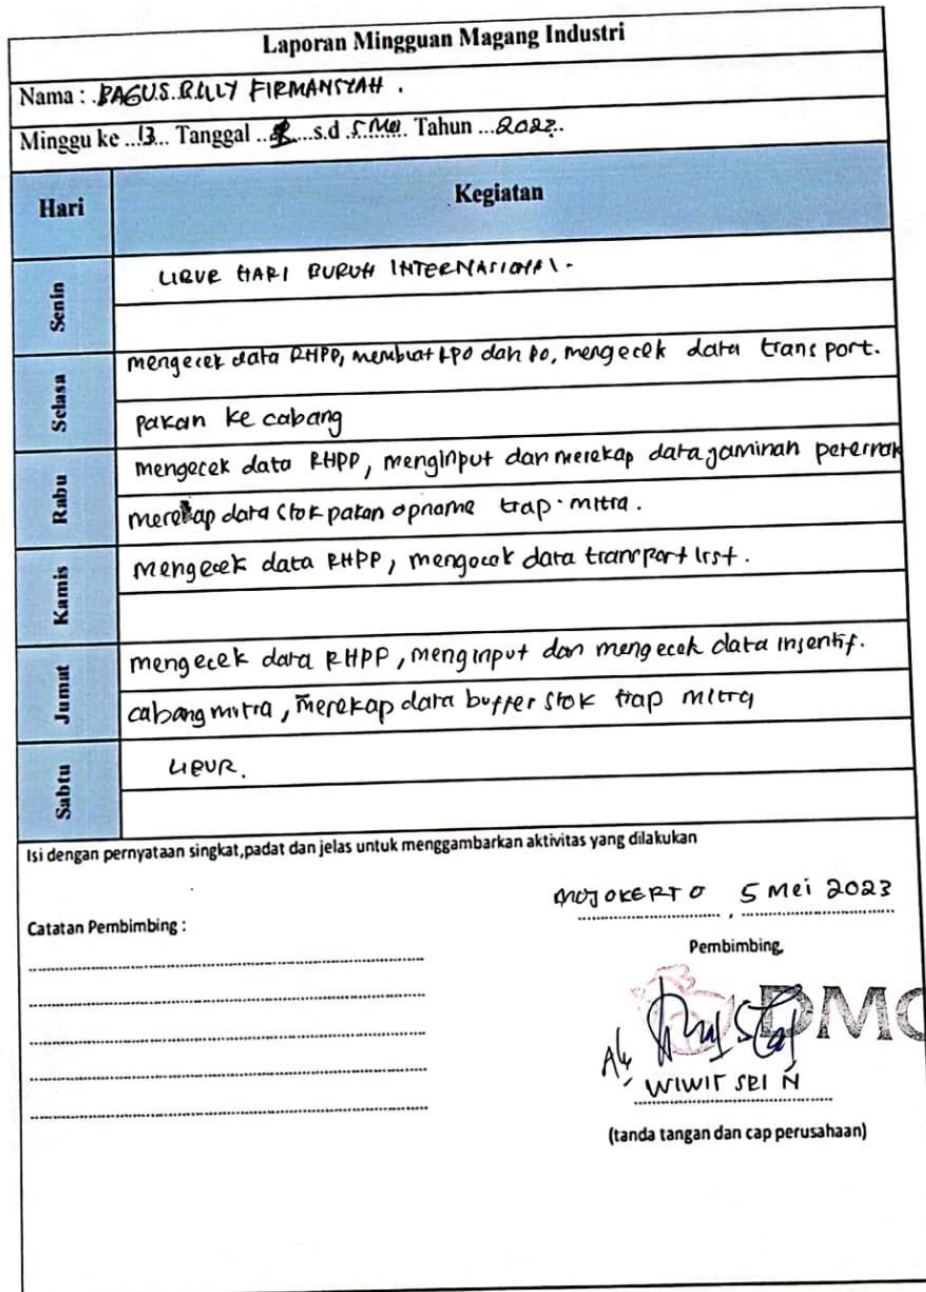 Laporan Mingguan Magang Industri
Nama : BAGUS RULLY FIRMANSYAH .
Minggu ke ...13... Tanggal ... s.d .5 Mei. Tahun ...2023..
Hari
Kegiatan
Senin
LIBUR HARI BURUH INTERNASIONAL.
Selasa
mengecek data RHPP, membuat PO dan PO, mengecek data transport.
pakan ke cabang
Rabu
mengecek data RHPP, menginput dan merekap data jaminan peternak
merekap data stok pakan opname tiap mitra.
Kamis
mengecek data RHPP, mengecek data transport list.
Jumat
mengecek data RHPP, menginput dan mengecek data insentif.
cabang mitra, merekap data buffer stok tiap mitra
Sabtu
LIBUR.
Isi dengan pernyataan singkat,padat dan jelas untuk menggambarkan aktivitas yang dilakukan
MOJOKERTO , 5 Mei 2023
Catatan Pembimbing :
Pembimbing,
WIWIT SRI N
(tanda tangan dan cap perusahaan)